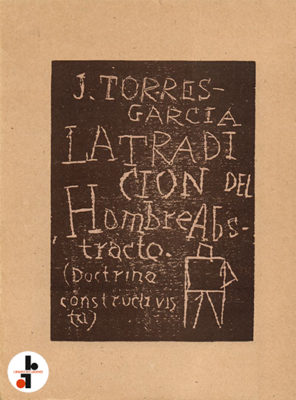 J. TORRES-
GARCÍA
LA TRADI
CION DEL
Hombre Abs-
tracto.
(Doctrina
constructivis
ta)